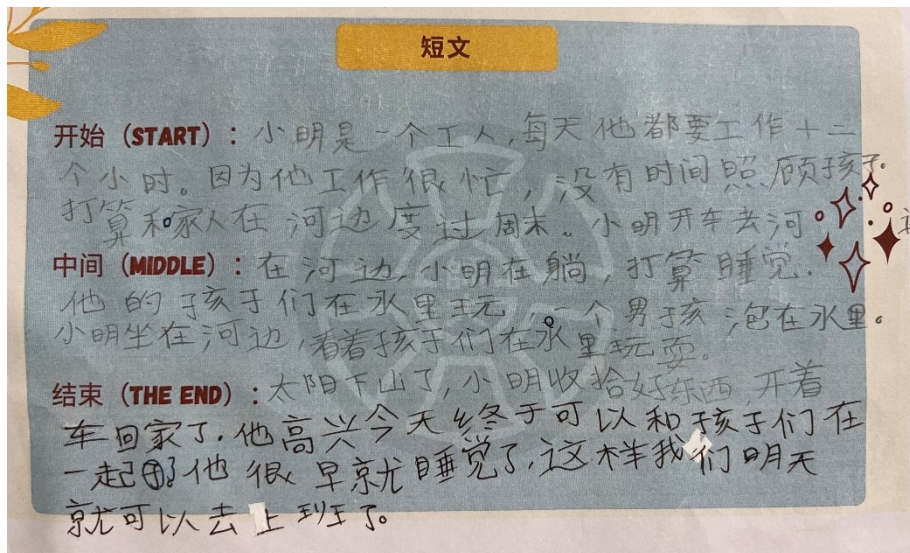 短文
开始（START）：小明是一个工人，每天他都要工作十二
个小时。因为他工作很忙，没有时间照顾孩子。
打算和家人在河边度过周末。小明开车去河
中间（MIDDLE）：在河边，小明在躺，打算睡觉.
他的孩子们在水里玩，。个男孩泡在水里。
小明坐在河边，看着孩子们在水里玩耍。
结束（THE END）：太阳下山了，小明收拾好东西，开着
车回家了.他高兴今天终于可以和孩子们在
一起了他很早就睡觉了，这样我们明天
就可以去上班了。